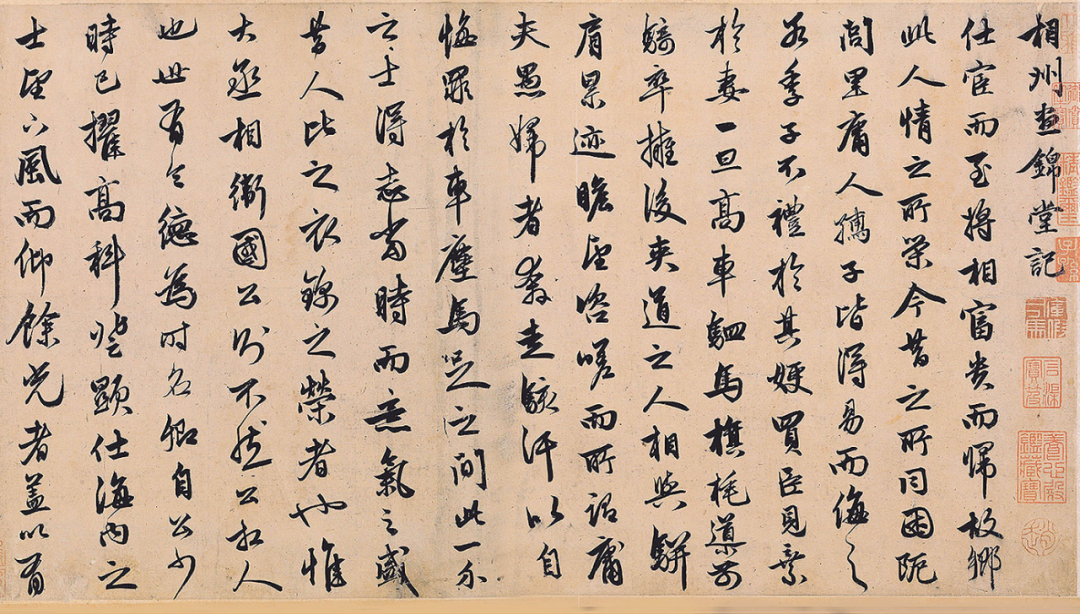 相州晝錦堂記
仕宦而至將相富貴而歸故鄉
此人情之所榮今昔之所同困阨
閭里庸人孺子皆得易而侮之
若季子不禮於其嫂買臣見棄
於妻一旦高車駟馬旗旄導前
騎卒擁後夾道之人相與駢
肩累迹瞻望咨嗟而所謂庸
夫愚婦者奔走駭汗以自
悔罪於車塵馬足之間此一介
之士得志當時而意氣之盛
昔人比之衣錦之榮者也惟
大丞相衛國公則不然公相人
也世有令德為时名卿自公少
時已擢高科登顯仕海內之
士望下風而仰餘光者蓋以有
石渠寶笈